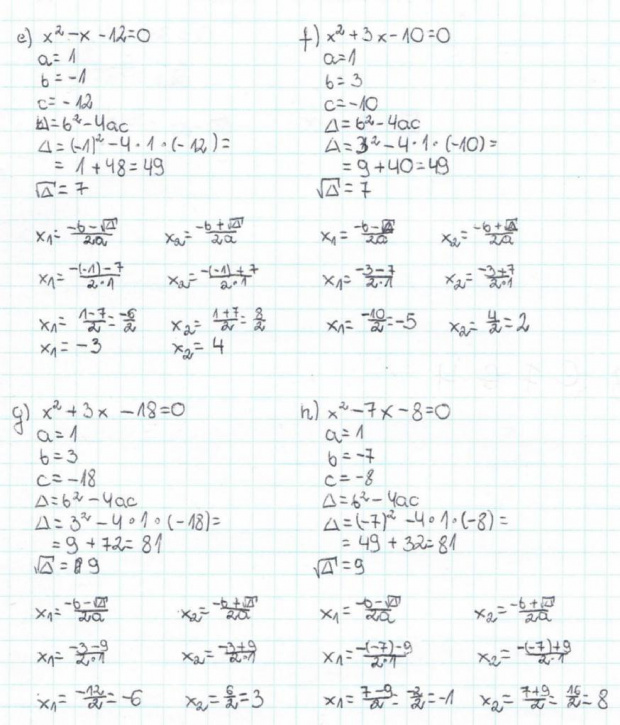 e) x² - x - 12 = 0
a = 1
b = -1
c = -12
Δ = b² - 4ac
Δ = (-1)² - 4 · 1 · (-12) =
= 1 + 48 = 49
√Δ = 7
x₁ = (-b - √Δ)/2a x₂ = (-b + √Δ)/2a
x₁ = (-(-1) - 7)/(2 · 1) x₂ = (-(-1) + 7)/(2 · 1)
x₁ = (1 - 7)/2 = -6/2 x₂ = (1 + 7)/2 = 8/2
x₁ = -3 x₂ = 4
f) x² + 3x - 10 = 0
a = 1
b = 3
c = -10
Δ = b² - 4ac
Δ = 3² - 4 · 1 · (-10) =
= 9 + 40 = 49
√Δ = 7
x₁ = (-b - √Δ)/2a x₂ = (-b + √Δ)/2a
x₁ = (-3 - 7)/(2 · 1) x₂ = (-3 + 7)/(2 · 1)
x₁ = -10/2 = -5 x₂ = 4/2 = 2
g) x² + 3x - 18 = 0
a = 1
b = 3
c = -18
Δ = b² - 4ac
Δ = 3² - 4 · 1 · (-18) =
= 9 + 72 = 81
√Δ = 9
x₁ = (-b - √Δ)/2a x₂ = (-b + √Δ)/2a
x₁ = (-3 - 9)/(2 · 1) x₂ = (-3 + 9)/(2 · 1)
x₁ = -12/2 = -6 x₂ = 6/2 = 3
h) x² - 7x - 8 = 0
a = 1
b = -7
c = -8
Δ = b² - 4ac
Δ = (-7)² - 4 · 1 · (-8) =
= 49 + 32 = 81
√Δ = 9
x₁ = (-b - √Δ)/2a x₂ = (-b + √Δ)/2a
x₁ = (-(-7) - 9)/(2 · 1) x₂ = (-(-7) + 9)/(2 · 1)
x₁ = (7 - 9)/2 = -2/2 = -1 x₂ = (7 + 9)/2 = 16/2 = 8